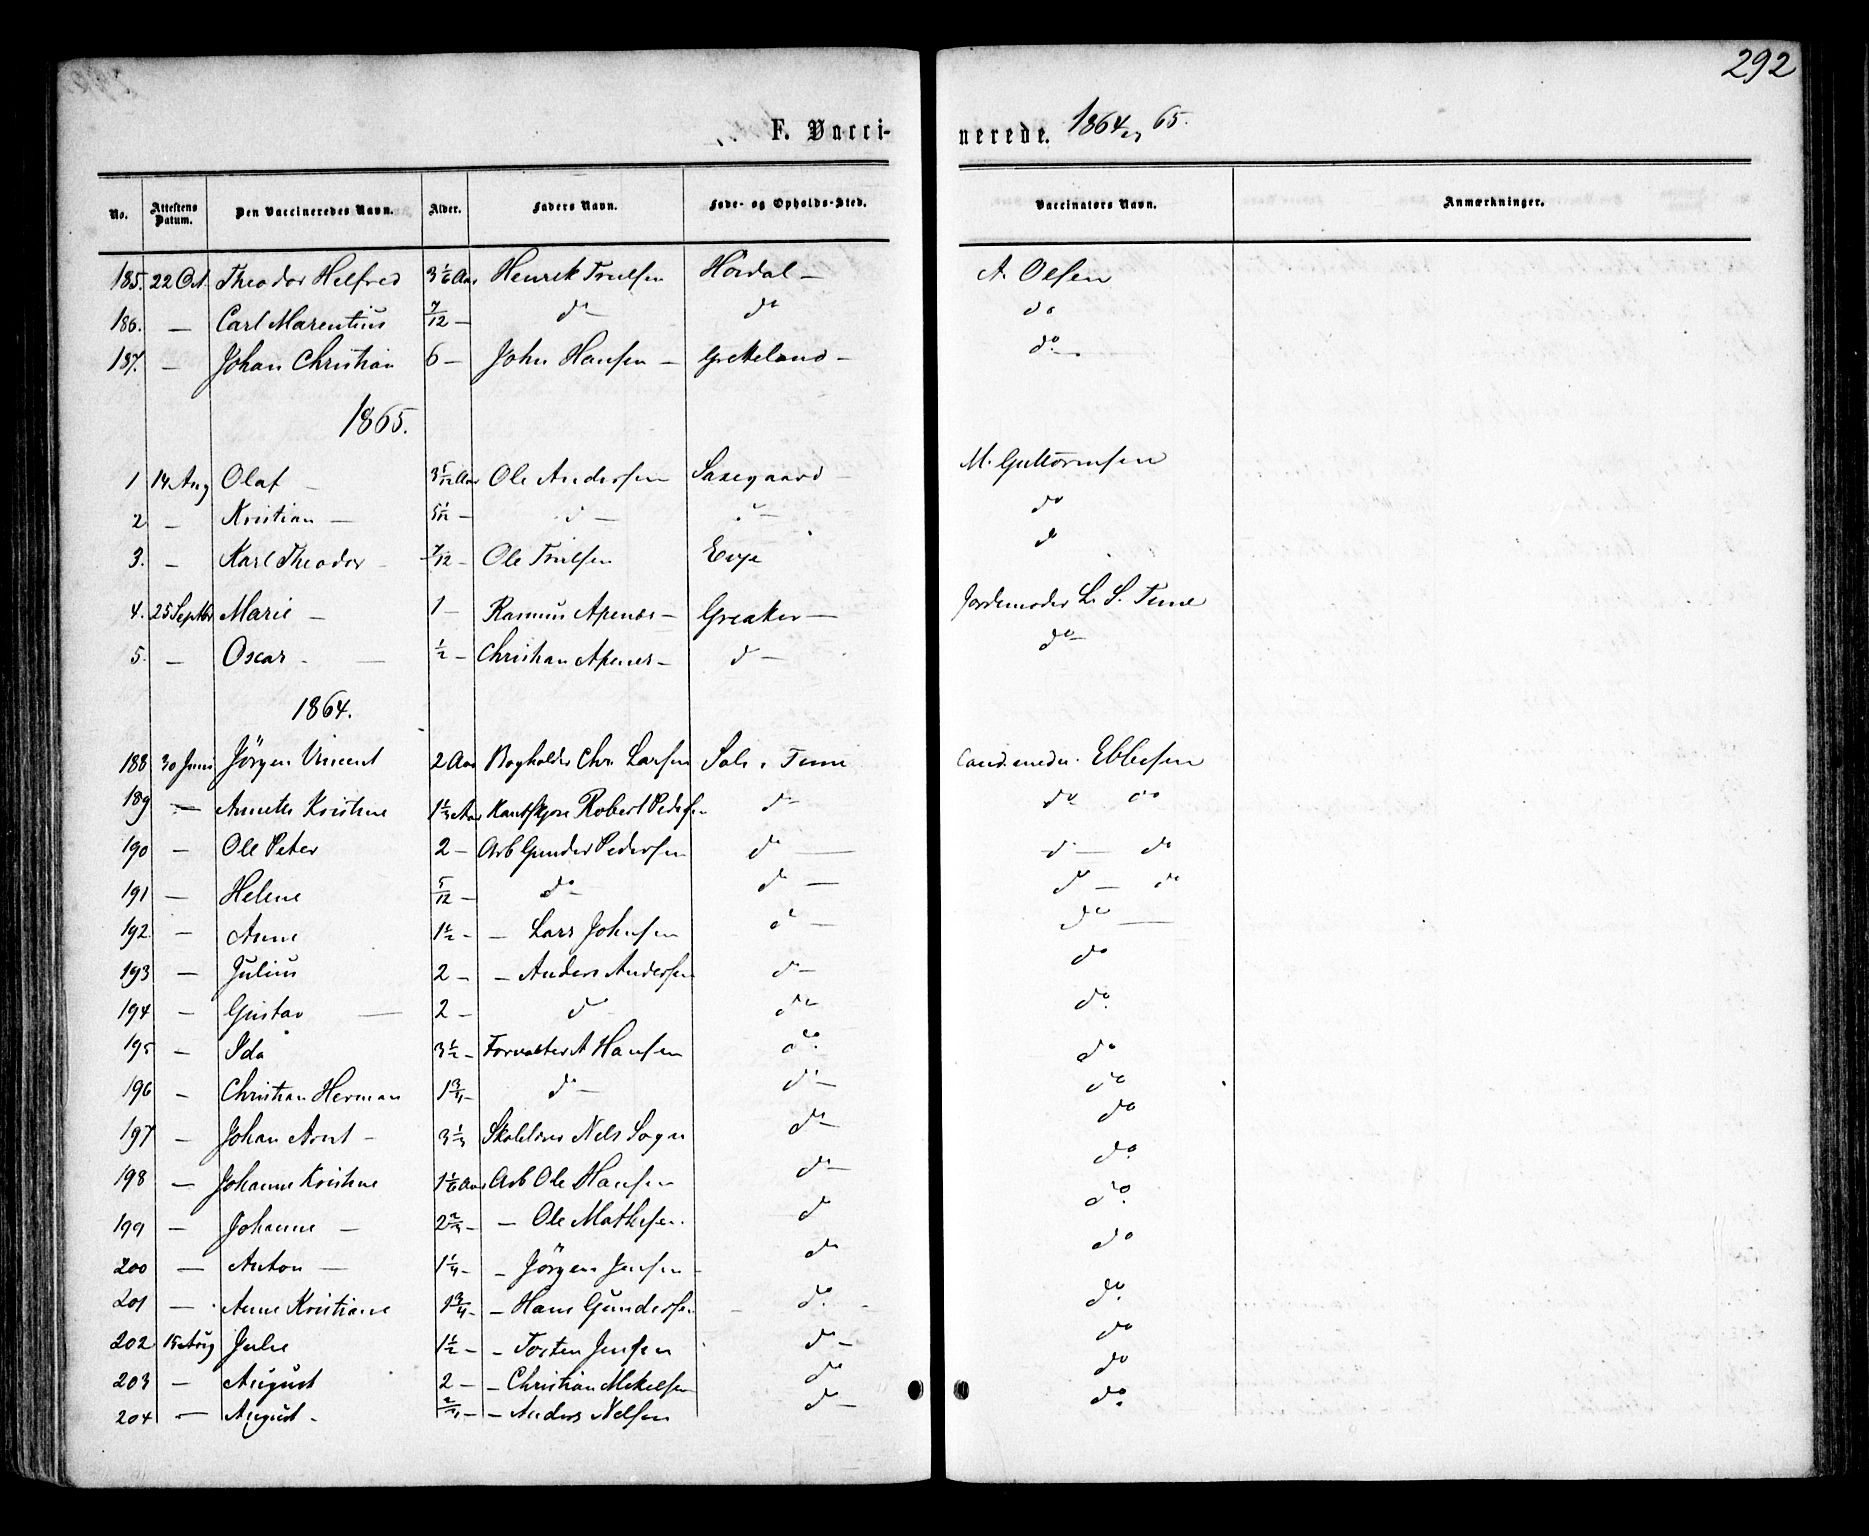 292
F. Vacci- nerede. 1864 og 65.
No. Attestens Datum. Den Vaccineredes Navn. Alder. Faders Navn. Føde- og Opholds-Sted. Vaccinators Navn. Anmærkninger.
185. 22 Oct. Theodor Helfred 3 1/6 Aar Henrik Truelsen Hördal – A. Olsen
186. – Carl Marentius 7/12 – do do do
187. – Johan Christian 6 – John Hansen – Grekeland – do
1865.
1 14 Aug Olaf – 3 5/12 Aar Ole Andersen Saxegaard – M. Guttormsen
2 – Kristian – – d – – do
3. – Karl Theodor – 7/12 – Ole Truelsen Evje do
4. 25 Septbr Marie – 1 – Rasmus Apenæs – Greaker – Jordemoder L. S. Tune
5. – Oscar – 1/2 – Christian Apenes – d – do
1864.
188 30 Juni Jörgen Vincent 2 Aar Bogholder Chr. Larsen Soli i Tune Cand. medic. Ebbesen
189 – Annette Kristine 1 1/3 Aar Robert Pedersen do do do
190 – Ole Peter 2 – Arb Gunder Pedersen do – d – do
191 – Helene 5/12 – do do – do – do
192 – Anne 1 1/2 – – Lars Johnsen d – do –
193 – Julius 2 – – Anders Andersen d – do
194 – Gustav – 2 – d do do
195 – Ida 3 1/2 – Forvalter A Hansen do. do
196 – Christian Herman 1 3/4 – do – d – do
197 – Johan Arnt – 3 1/3 Skolelærer Nels Sogn do – do
198 – Johanne Kristine 1 1/6 Aar Arb Ole Hansen do – do.
199 – Johanne – 2 2/3 – – Ole Mathesen. d do.
200 – Anton – 1 1/4 – – Jörgen Jensen – do do
201 – Anne Kristiane 1 3/4 – – Hans Gundersen – do. – do.
202 15 Aug Julie 1 1/2 – – Torsten Jensen do – do
203 – August 2 – – Christian Mekelsen do do
204 – August – – – Anders Nelsen do – do.